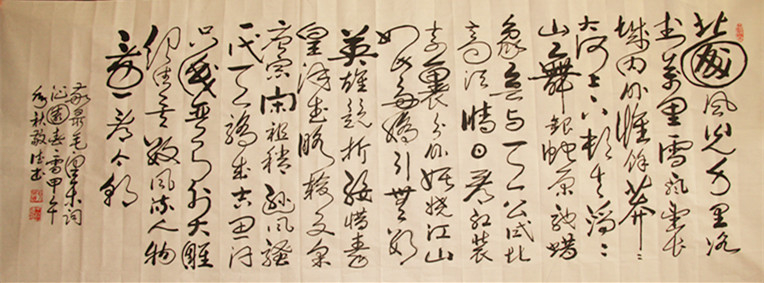 北國風光千里冰
封萬里雪飄望長
城内外惟餘莽々
大河上下頓失滔々
山舞銀蛇原馳蠟
象欲与天公試比
高須晴日看紅裝
素裹分外妖嬈江山
如此多嬌引無數
英雄競折腰惜秦
皇漢武略輸文采
唐宗宋祖稍遜風騷
一代天驕成吉思汗
只識彎弓射大雕
俱往矣數風流人物
還看今朝
敬录毛澤東詞
沁園春雪甲午
秋敬書